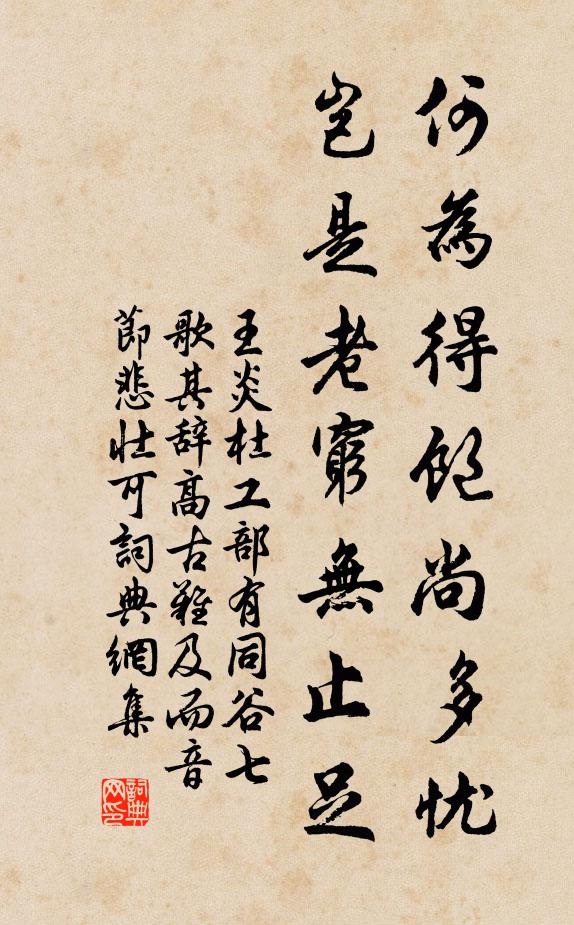 何為得飽尚多忧
岂是老窮無止足
王炎杜工部有同谷七
歌其辞高古難及而音
節悲壮可詞典網集
詞典网印